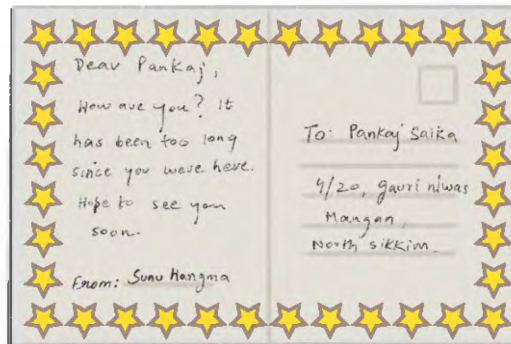 Dear Pankaj,
How are you? It
has been too long
since you were here.
Hope to see you
soon.
From: Sunu Hangma
To: Pankaj Saika
4/20, gauri niwas
Mangan,
North sikkim.